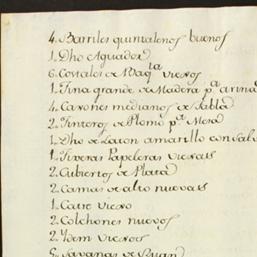 4. Barriles quintaleños buenos
1. Dho Aguador
6. Costales de Baqta viexos
1. Tina grande de Madera pa arina
4. Caxones medianos de tabla
2. Tinteros de Plomo pa Mesa
1. Dho de Laton amarillo con Sal
1. Tixeras Papeleras viexas
2. Cubiertos de Plata
2. Camas de alto nuevas
1. Catre viexo
2. Colchones nuevos
2. Ydem viexos
5. Savanas de Ruan